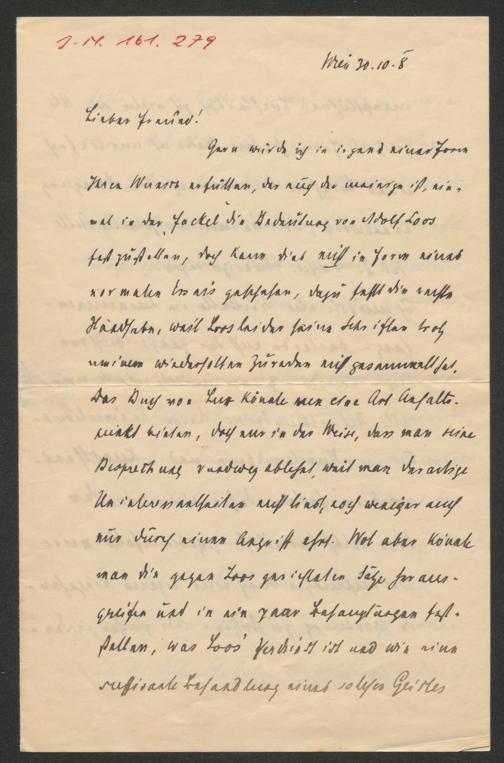 J. N. 161.279
Wien 30.10.8
Lieber Freund!
Gern würde ich in irgend einer Form
Ihren Wunsch erfüllen, der auch der meinige ist, ein-
mal in der Fackel die Bedeutung von Adolf Loos
festzustellen, doch kann dies nicht in Form eines
normalen Essais geschehen, dazu fehlt die rechte
Handhabe, weil Loos leider seine Schriften trotz
meinem wiederholten Zureden nicht gesammelt hat.
Das Buch von Lux könnte nun eine Art Anhalts-
punkt bieten, doch nur in der Weise, dass man seine
Besprechung rundweg ablehnt, weil man derartige
Uninteressantheiten nicht liest, noch weniger auch
nur durch einen Angriff ehrt. Wol aber könnte
man die gegen Loos gerichteten Sätze heraus-
greifen und in ein paar Behauptungen fest-
stellen, was Loos' Verdienst ist und wie eine
suffisante Behandlung eines solchen Geistes